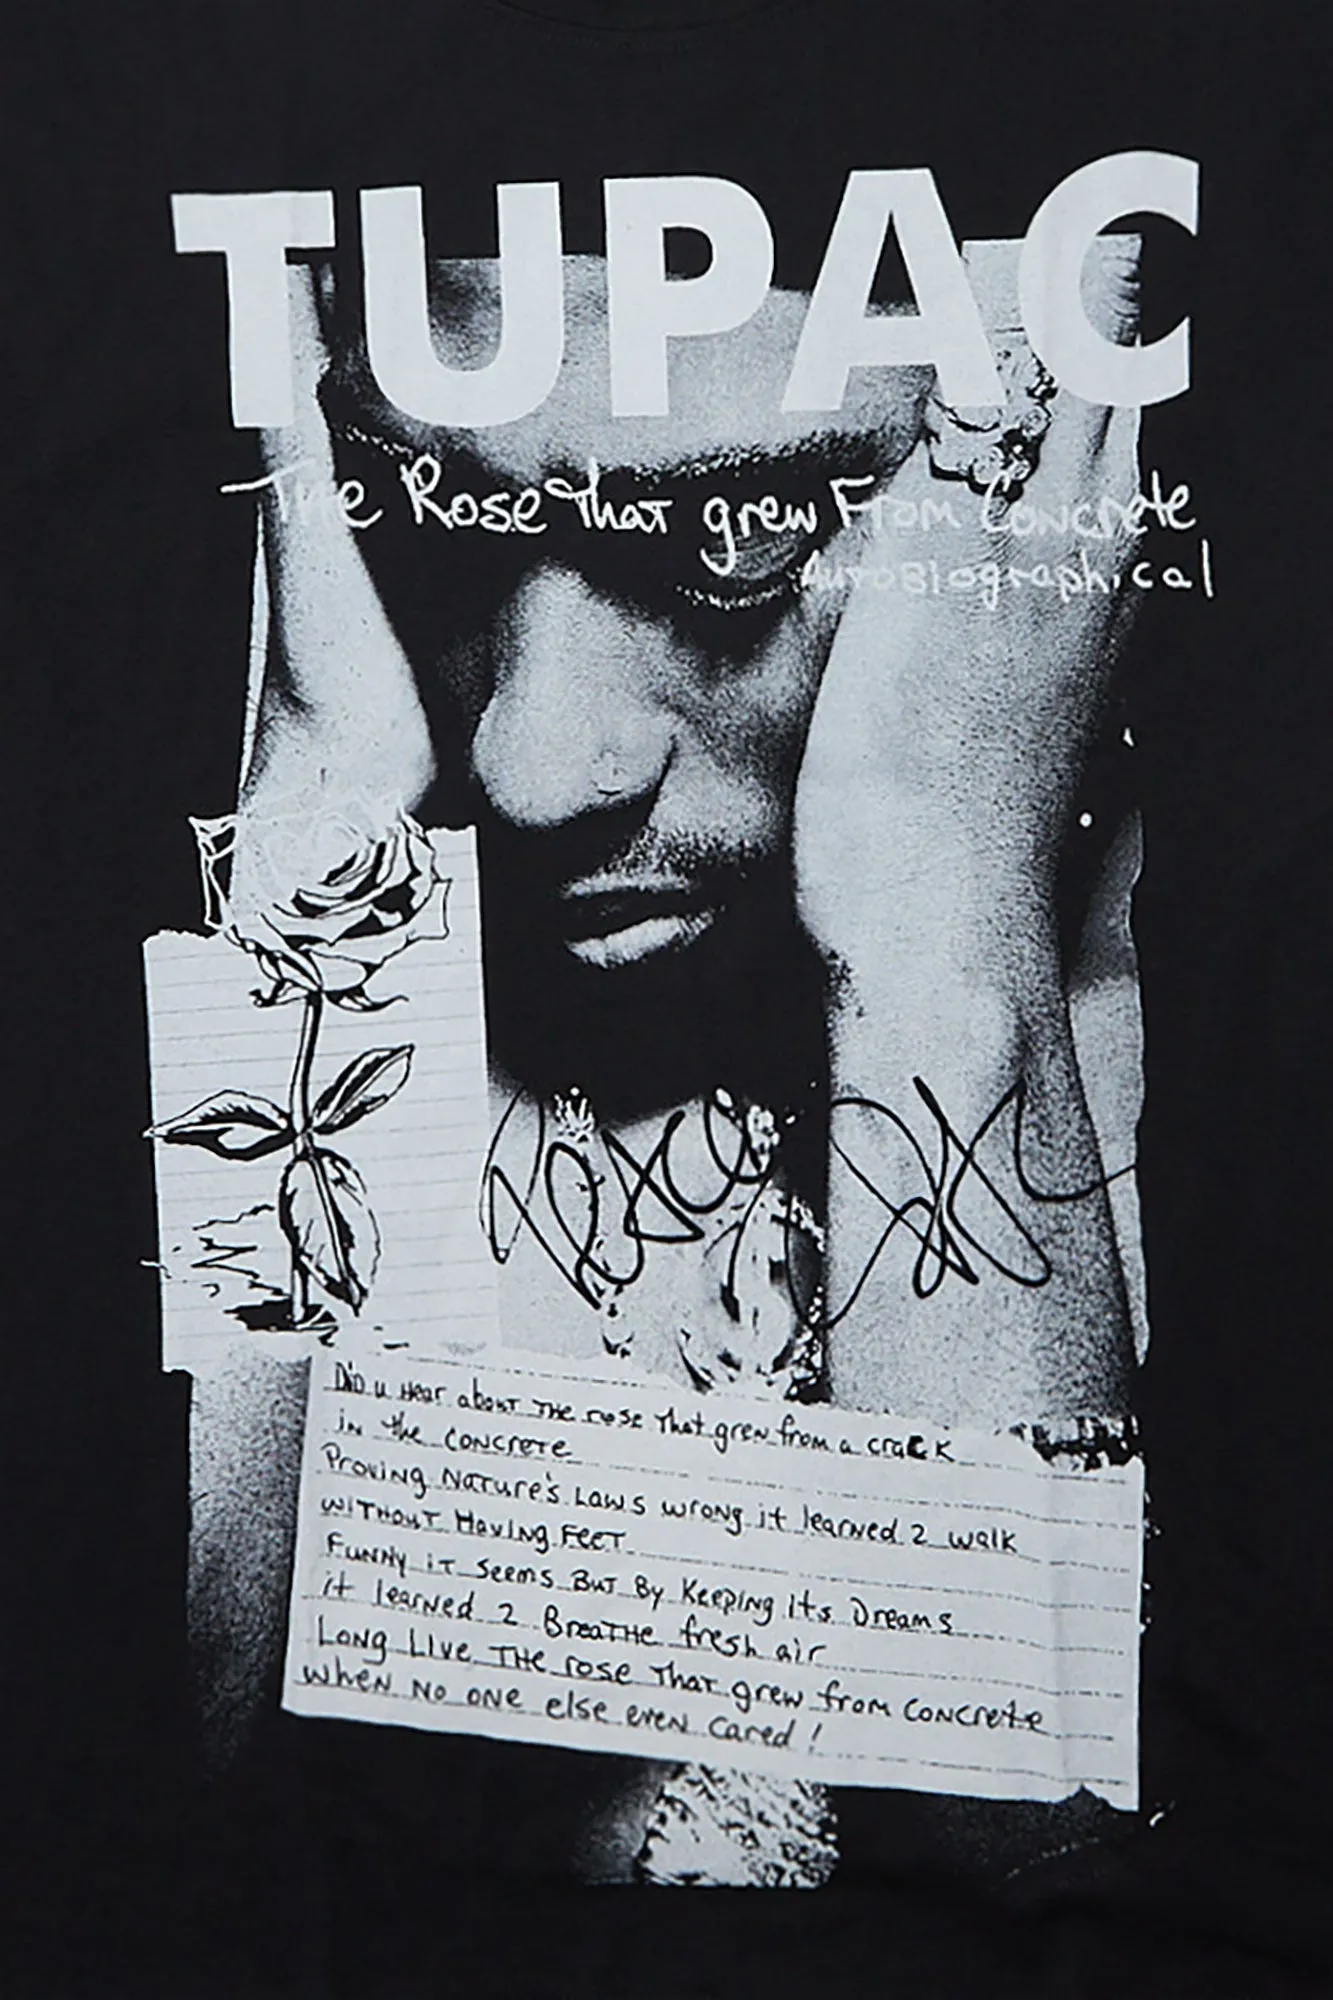 TUPAC
The Rose That grew From Concrete
Autobiographical
Peace
Did u Hear about THE rose That grew from a crack
in the concrete
Proving Nature's Laws wrong it learned 2 walk
WITHOUT Having FEET
Funny iT Seems BUT By Keeping its Dreams
it learned 2 BreaTHe fresh air
Long Live THe rose That grew from Concrete
when no one else even cared!